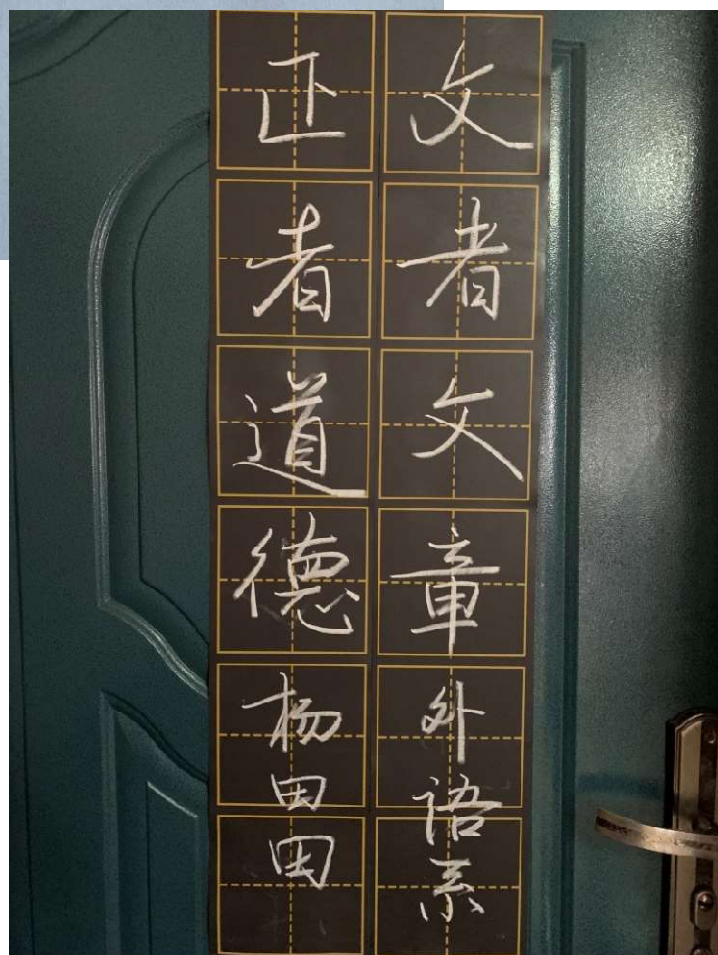 文者文章外语系
正者道德杨田田